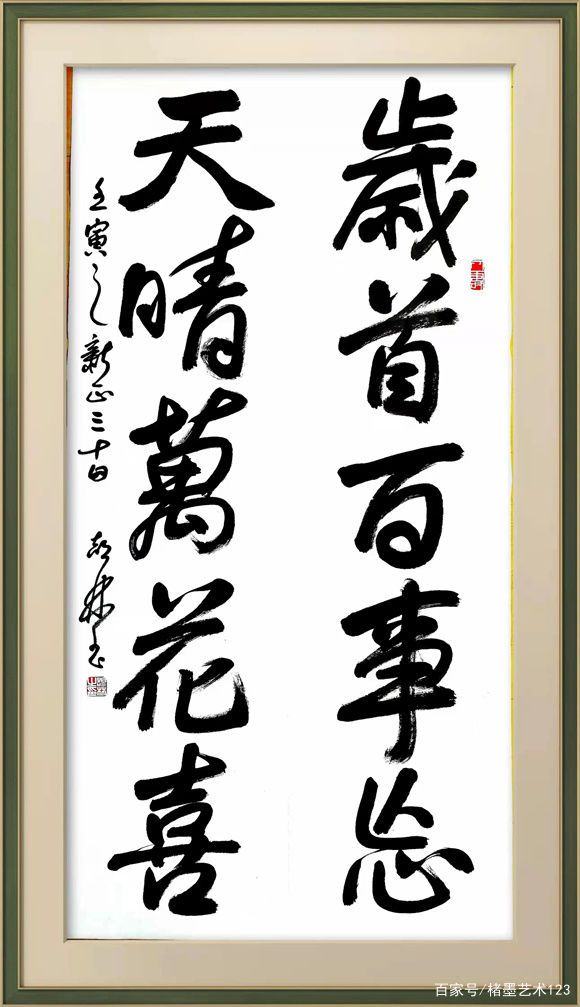 歲首百事忘
天晴萬花喜
壬寅之新正三十日
百家号/楮墨艺术123